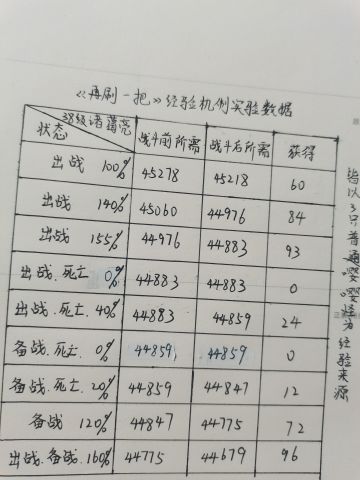 《再刷一把》经验机例实验数据
38级诸葛亮
状态 战斗前所需 战斗后所需 获得
出战 100% 45278 45218 60
出战 140% 45060 44976 84
出战 155% 44976 44883 93
出战.死亡 0% 44883 44883 0
出战.死亡.40% 44883 44859 24
备战.死亡.0% 44859 44859 0
备战.死亡.20% 44859 44847 12
备战 120% 44847 44775 72
出战.备战.160% 44775 44679 96
皆以3只普通嘤嘤怪为经验来源